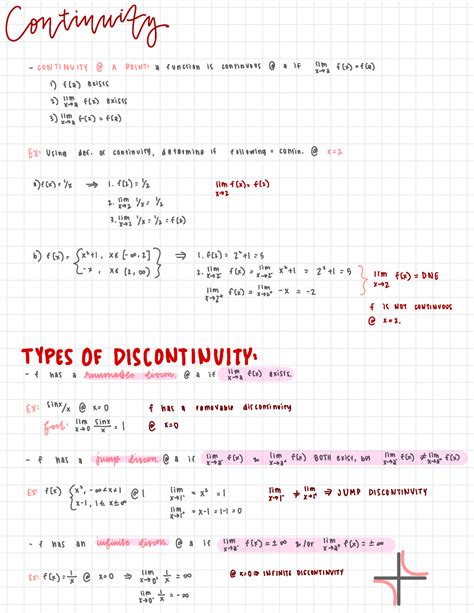 Continuity
- CONTINUITY @ A POINT: a function is continuous @ a if lim x→a f(x)=f(a)
1) f(a) exists
2) lim x→a f(x) exists
3) lim x→a f(x) = f(a)
Ex: Using def. of continuity, determine if following = contin. @ x=2
a) f(x) = 1/x ⇒ 1. f(2) = 1/2 lim x→2 f(x) = f(2)
2. lim x→2 1/x = 1/2
3. lim x→2 1/x = 1/2 = f(2)
b) f(x) = { x²+1, x∈[-∞,2] ⇒ 1. f(2) = 2²+1 = 5
-x, x∈(2,∞) 2. lim x→2⁻ f(x) = lim x→2⁻ x²+1 = 2²+1 = 5
lim x→2⁺ f(x) = lim x→2⁺ -x = -2 } lim x→2 f(x) = DNE
f IS NOT CONTINUOUS
@ x=2.
TYPES OF DISCONTINUITY:
- f has a removable discon. @ a if lim x→a f(x) exists.
Ex: sinx/x @ x=0 f has a removable discontinuity
fact: lim x→0 sinx/x = 1 @ x=0
- f has a jump discon. @ a if lim x→a⁻ f(x) & lim x→a⁺ f(x) BOTH exist, but lim x→a⁻ f(x) ≠ lim x→a⁺ f(x)
Ex: f(x) { x², -∞<x<1 @ 1 lim x→1⁻ = x² = 1 lim x→1⁻ ≠ lim x→1⁺ ⇒ JUMP DISCONTINUITY
x-1, 1≤x≤∞ lim x→1⁺ = x-1 = 1-1=0
- f has an infinite discon. @ a if lim x→a⁻ f(x) = ±∞ &/or lim x→a⁺ f(x) = ±∞
Ex: f(x) = 1/x @ x=0 ⇒ lim x→0⁺ 1/x = ∞ @ x=0 ⇒ INFINITE DISCONTINUITY
lim x→0⁻ 1/x = -∞